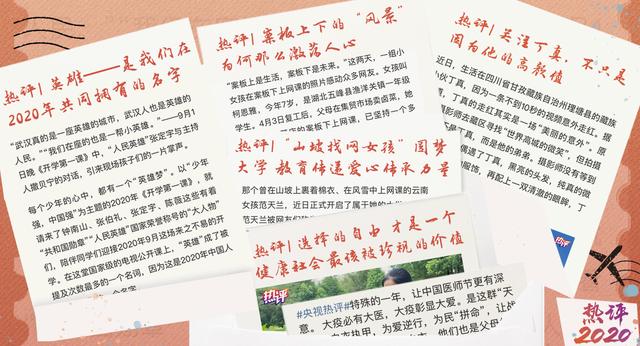 热评| 英雄——是我们在
2020年共同拥有的名字
“武汉真的是一座英雄的城市，武汉人也是英雄的
人民。”“我们在座的也是一帮小英雄。”——9月1
日晚《开学第一课》中，“人民英雄”张定宇与主持
人撒贝宁的对话，引来现场孩子们的一片掌声。
每个少年的心中，都有一个“英雄梦”。以“少年
强，中国强”为主题的2020年《开学第一课》，就
请来了钟南山、张伯礼、张定宇、陈薇这些有着
“共和国勋章”“人民英雄”国家荣誉称号的“大人物”
们，陪伴同学们迎接2020年9月这场来之不易的开
学。在这堂国家级的电视公开课上，“英雄”成了被
提及次数最多的一个名词，因为这是2020年中国人
热评| 案板上下的“风景”
为何那么激荡人心
“案板上是生活，案板下是未来。”这两天，一组小
女孩在案板下上网课的照片感动众多网友。女孩叫
柯恩雅，今年7岁，是湖北五峰县渔洋关镇一年级
学生。4月3日复工后，父母在集贸市场卖卤菜，她
案板下上网课，已坚持一个多
热评| “山坡找网女孩”圆梦
大学 教育传递爱心传承力量
那个曾在山坡上裹着棉衣、在风雪中上网课的云南
女孩范天兰，近日正式开启了属于她的
范天兰被网友们
热评| 选择的自由才是一个
健康社会最该被珍视的价值
热评
#央视热评#特殊的一年，让中国医师节更有深
意。 大疫必有大医，大疫彰显大爱。是这群“天
白衣执甲，为爱逆行，为民“拼命”，让战
他们也是父母
热评| 关注丁真，不只是
因为他的高颜值
近日，生活在四川省甘孜藏族自治州理塘县的藏族
小伙丁真，因为一条不到10秒的视频意外走红。据
丁真的走红其实是一场“美丽的意外”。原
摄影师去藏区寻找“世界高城的微笑”，但拍摄
丁真，而是他的弟弟。摄影师没有等到
偶遇了丁真，黑亮的头发，纯真的微
服饰，再配上一双清澈的眼眸，丁
热评
热评
2020